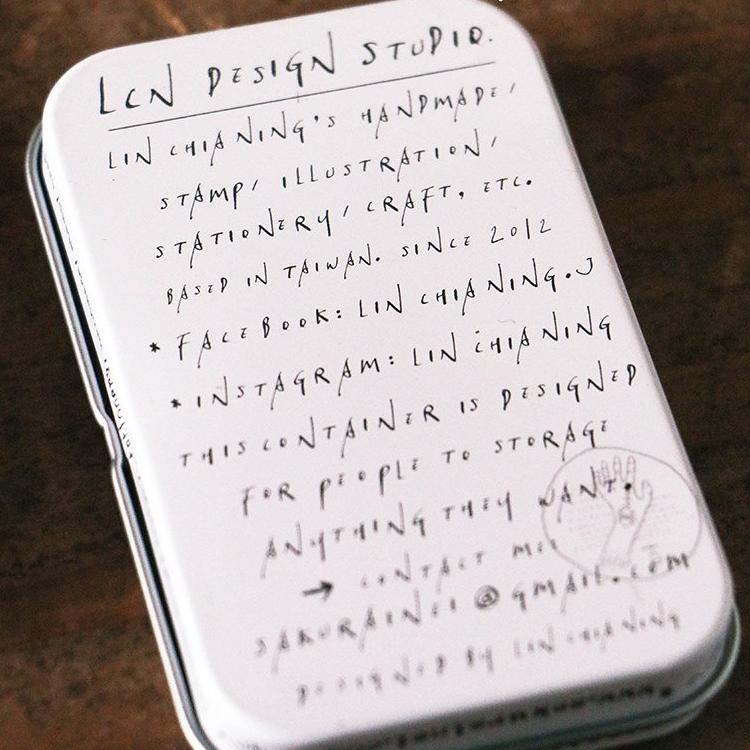 LCN DESIGN STUDIO.
LIN CHIANING'S HANDMADE,
STAMP, ILLUSTRATION,
STATIONERY, CRAFT, ETC.
BASED IN TAIWAN. SINCE 2012
* FACEBOOK: LIN CHIANING.J
* INSTAGRAM: LIN CHIANING
THIS CONTAINER IS DESIGNED
FOR PEOPLE TO STORAGE
ANYTHING THEY WANT.
→ CONTACT ME:
@GMAIL.COM
DESIGNED BY LIN CHIANING